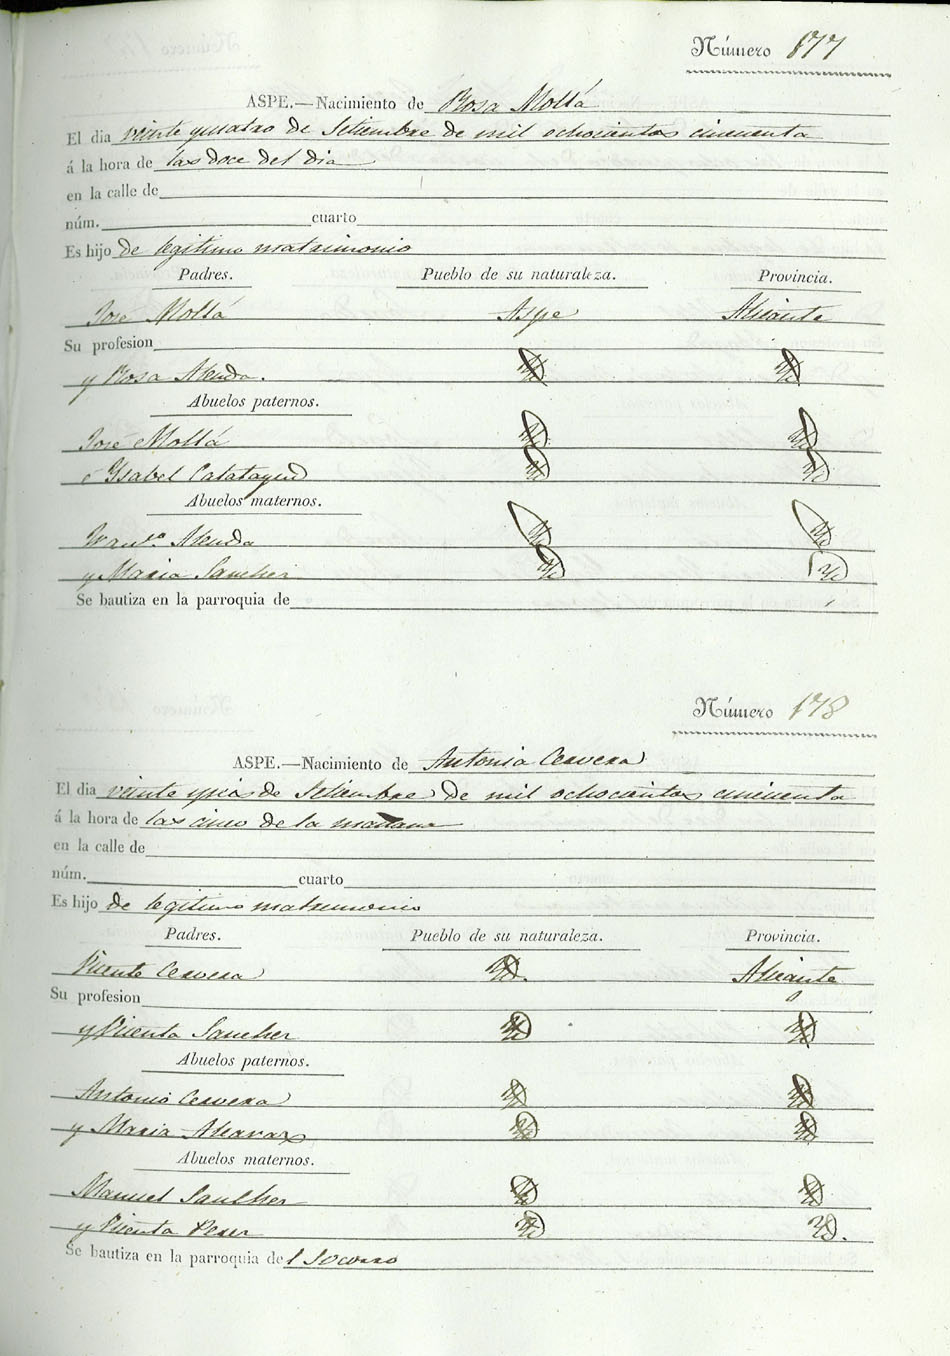 Número 177
ASPE.—Nacimiento de Rosa Mollá
El dia veinte yquatro de Setiembre de mil ochocientos cincuenta
á la hora de las doce del dia
en la calle de
núm. cuarto
Es hijo de legitimo matrimonio
Padres. Pueblo de su naturaleza. Provincia.
José Mollá Aspe Alicante
Su profesion
y Rosa Alenda. Yd Yd
Abuelos paternos.
José Mollá Yd Yd
é Ysabel Calatayud Yd Yd
Abuelos maternos.
Alenda Yd Yd
y Maria Sanchez Yd Yd
Se bautiza en la parroquia de
Número 178
ASPE.—Nacimiento de Antonia Cervera
El dia veinte de Setiembre de mil ochocientos cincuenta
á la hora de las cinco de la mañana
en la calle de
núm. cuarto
Es hijo de legitimo matrimonio
Padres. Pueblo de su naturaleza. Provincia.
Vicente Cervera Yd. Alicante
Su profesion
y Vicenta Sancher Yd Yd
Abuelos paternos.
Antonio Cervera Yd Yd
y Maria Yd Yd
Abuelos maternos.
Manuel Sancher Yd Yd
y Vicenta Perer Yd Yd.
Se bautiza en la parroquia de l Socorro